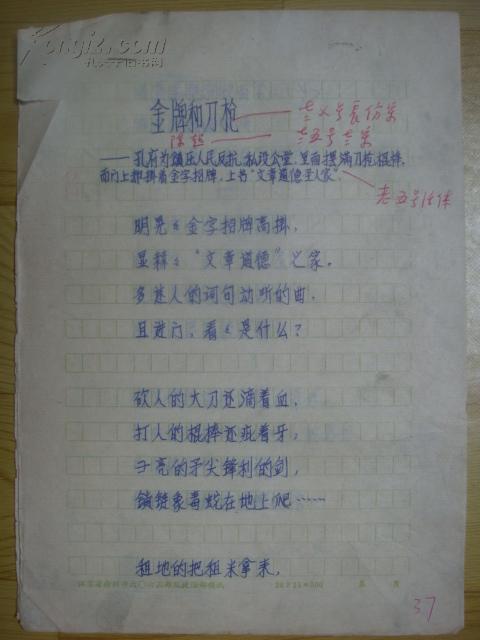 Kongfz.com
孔夫子旧书网
金牌和刀枪
老五号长仿宋
陈超
老五号老宋
——孔府为镇压人民反抗,私设公堂,里面摆满刀枪、棍棒,
而门上却挂着金字招牌,上书“文章道德圣人家”。
老五号仿体
明晃々金字招牌高掛,
显赫々“文章道德”之家。
多迷人的词句动听的曲,
且进门,看々是什么?
砍人的大刀还滴着血,
打人的棍棒还龇着牙,
亮的矛尖锋利的剑,
锁链象毒蛇在地上爬……
租地的把租米拿来,
20×15=300
第 页
37